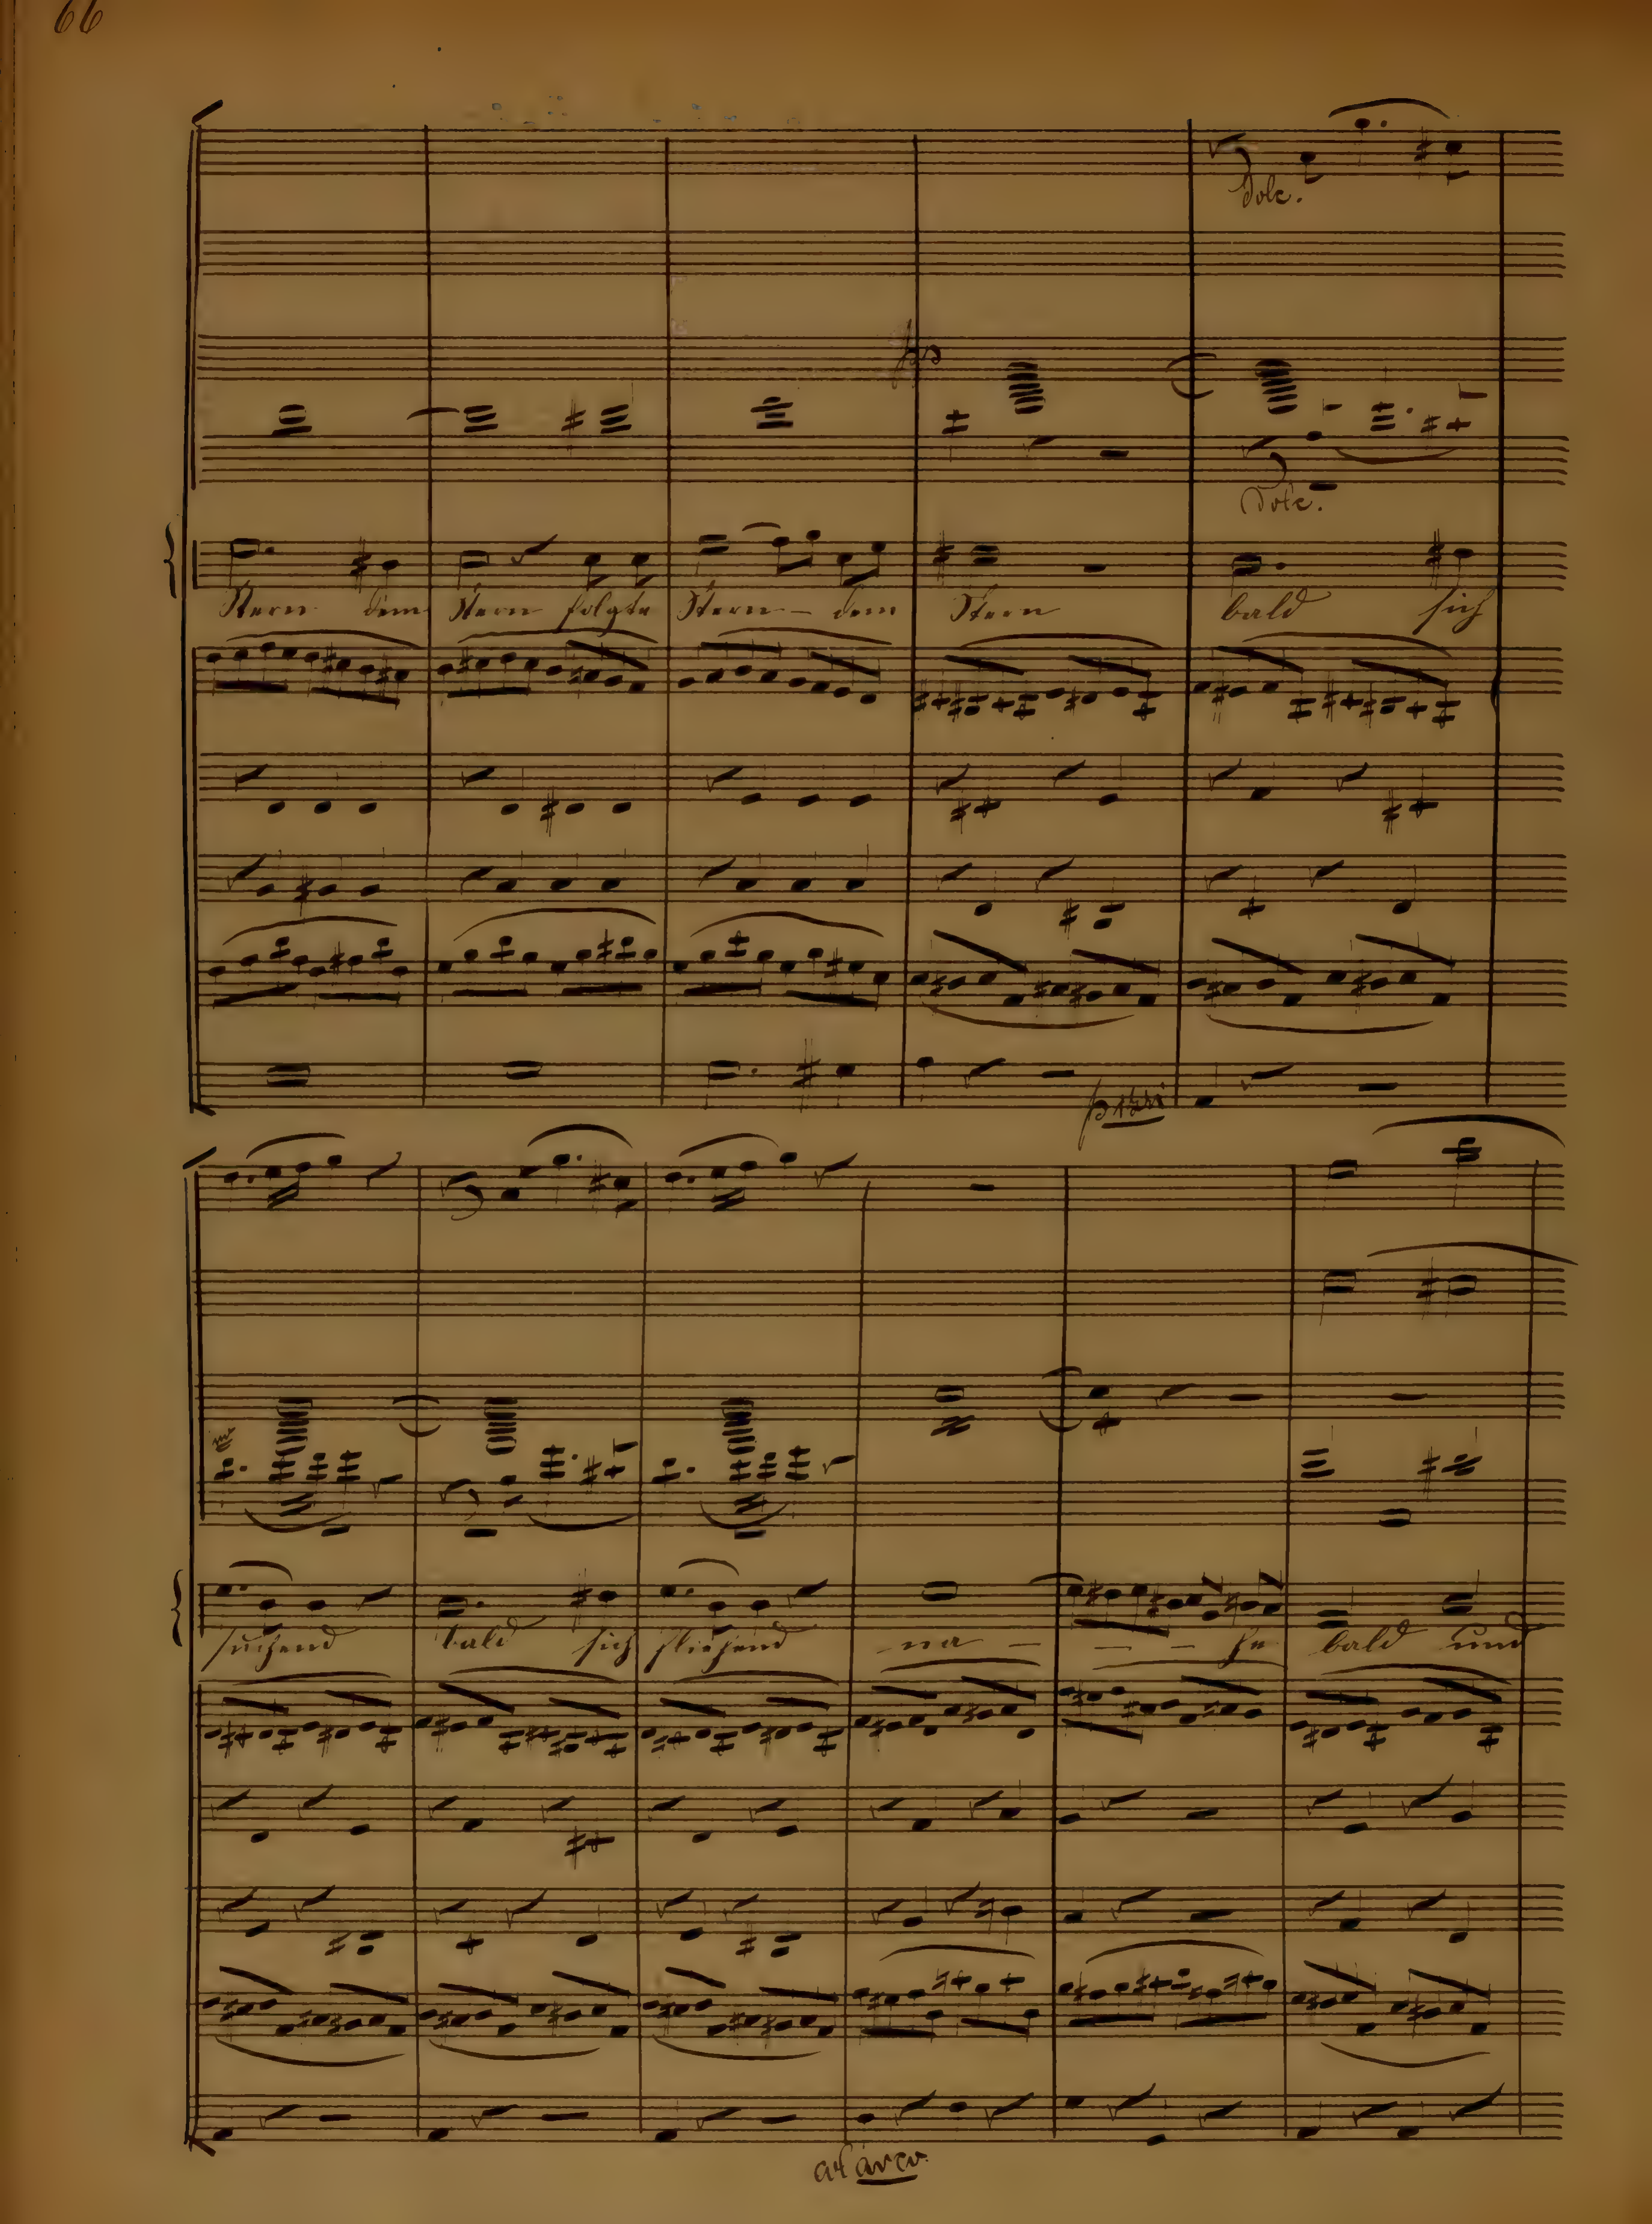 66
Dolc.
pp
Dolc.
Stern dem Stern folgte Stern - dem Stern bald sich
pizzi
suchend bald sich fliehend na - - - he bald und
arco